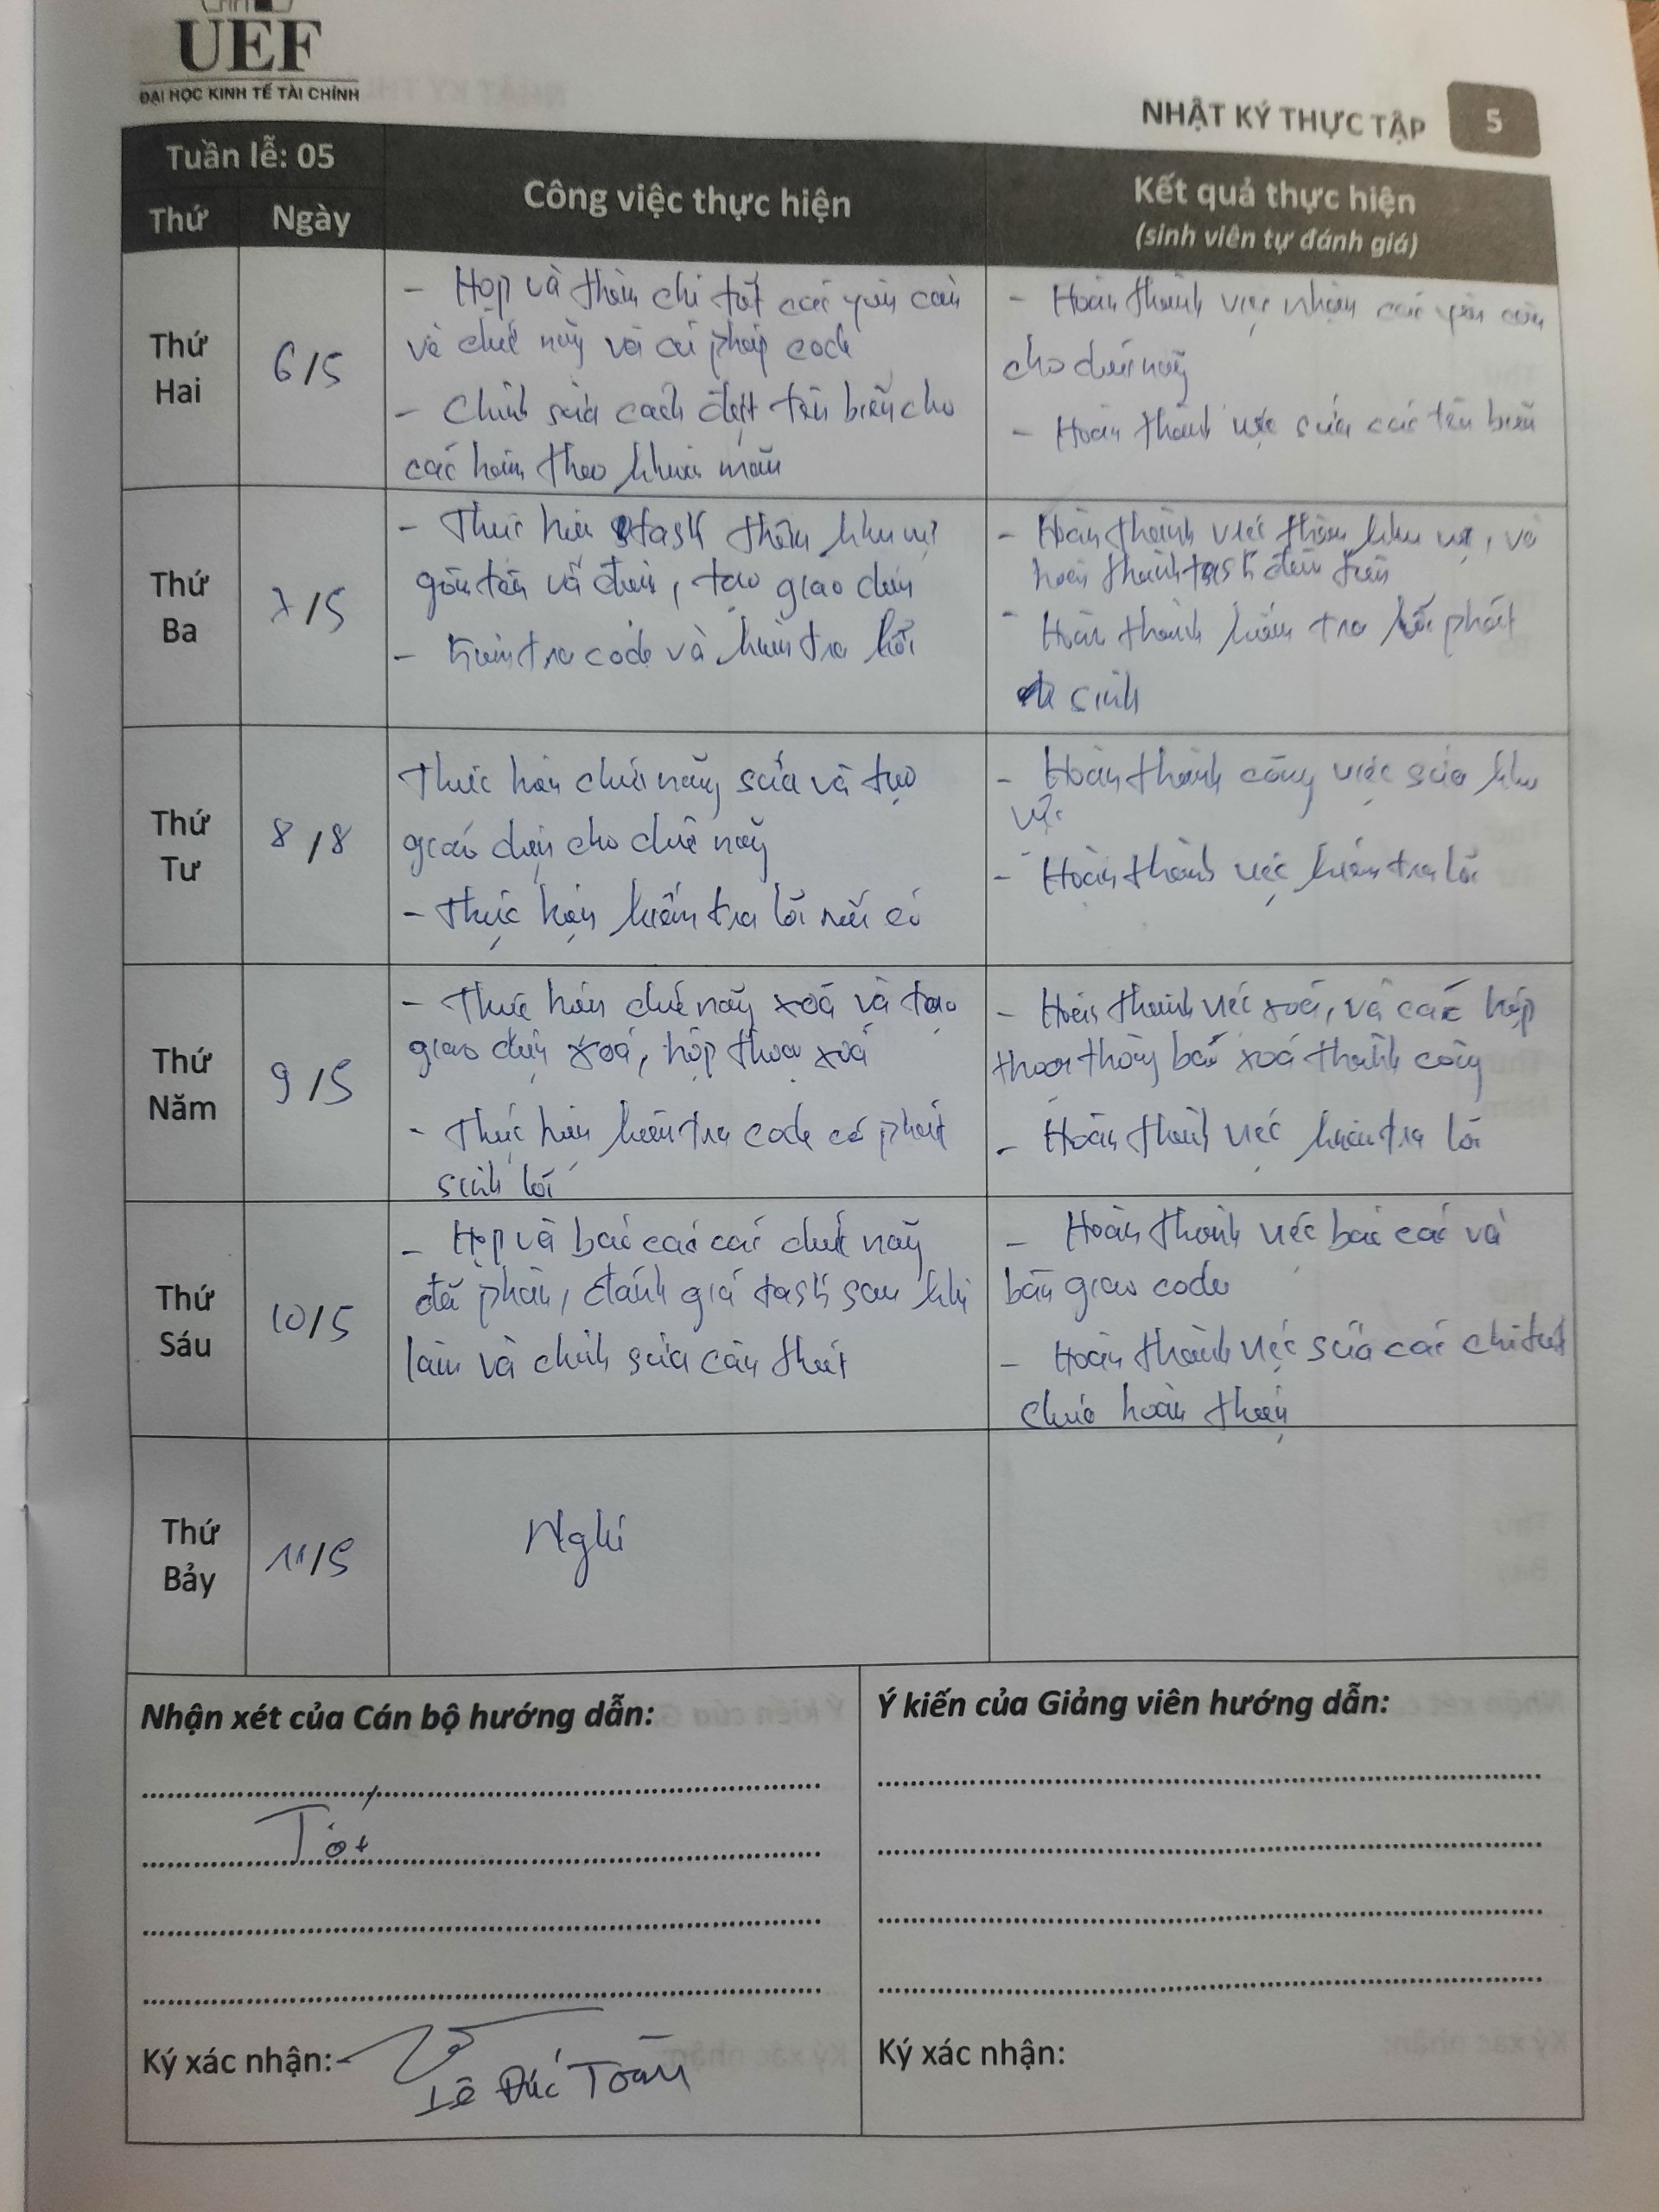 UEF
ĐẠI HỌC KINH TẾ TÀI CHÍNH
NHẬT KÝ THỰC TẬP 5
Tuần lễ: 05
Thứ Ngày
Công việc thực hiện
Kết quả thực hiện
(sinh viên tự đánh giá)
Thứ Hai
6/5
- Họp và thêm chi tiết các yêu cầu
về chức năng và cú pháp code
- Chỉnh sửa cách đặt tên biến cho
các hàm theo khuôn mẫu
- Hoàn thành việc nhận các yêu cầu
cho chức năng
- Hoàn thành việc sửa các tên biến
Thứ Ba
7/5
- Thực hiện task thêm khu vực
gồm tên và điểm, tạo giao diện
- Kiểm tra code và kiểm tra lỗi
- Hoàn thành việc thêm khu vực, và
hoàn thành task đầu tiên
- Hoàn thành kiểm tra lỗi phát
sinh
Thứ Tư
8/8
Thực hiện chức năng sửa và tạo
giao diện cho chức năng
- Thực hiện kiểm tra lỗi nếu có
- Hoàn thành công việc sửa khu
vực
- Hoàn thành việc kiểm tra lỗi
Thứ Năm
9/5
- Thực hiện chức năng xoá và tạo
giao diện xoá, hộp thoại xoá
- Thực hiện kiểm tra code có phát
sinh lỗi
- Hoàn thành việc xoá, và các hộp
thoại thông báo xoá thành công
- Hoàn thành việc kiểm tra lỗi
Thứ Sáu
10/5
- Họp và báo cáo các chức năng
đã phân, đánh giá task sau khi
làm và chỉnh sửa cần thiết
- Hoàn thành việc báo cáo và
bàn giao code
- Hoàn thành việc sửa các chi tiết
chưa hoàn thiện
Thứ Bảy
11/5
Nghỉ
Nhận xét của Cán bộ hướng dẫn:
Tốt
Ký xác nhận:
Lê Đức Toàn
Ý kiến của Giảng viên hướng dẫn:
Ký xác nhận: